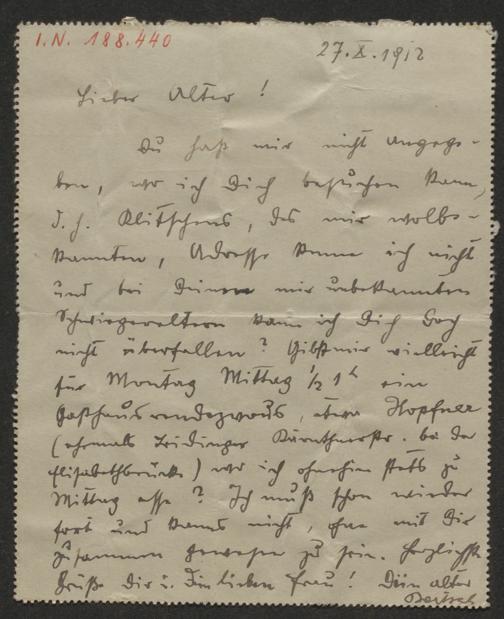 I.N. 188.440
27.X.1912
Lieber Alter!
Du hast mir nicht angege-
ben, wo ich Dich besuchen kann,
d.h. Klitschens, des mir wolbe-
kannten, Adresse kenne ich nicht
und bei Deinen mir unbekannten
Schwiegereltern kann ich Dich doch
nicht überfallen? Gibst mir vielleicht
für Montag Mittag ½ 1 h ein
Gasthausrendezvous, etwa Hopfner
(ehemals Leidinger Kärnthnerstr. bei der
Elisabethbrücke) wo ich ohnehin stets zu
Mittag esse? Ich muß schon wieder
fort und kanns nicht, ohne mit Dir
zusammen gewesen zu sein. Herzlichste
Grüße Dir u. Deiner lieben Frau! Dein alter